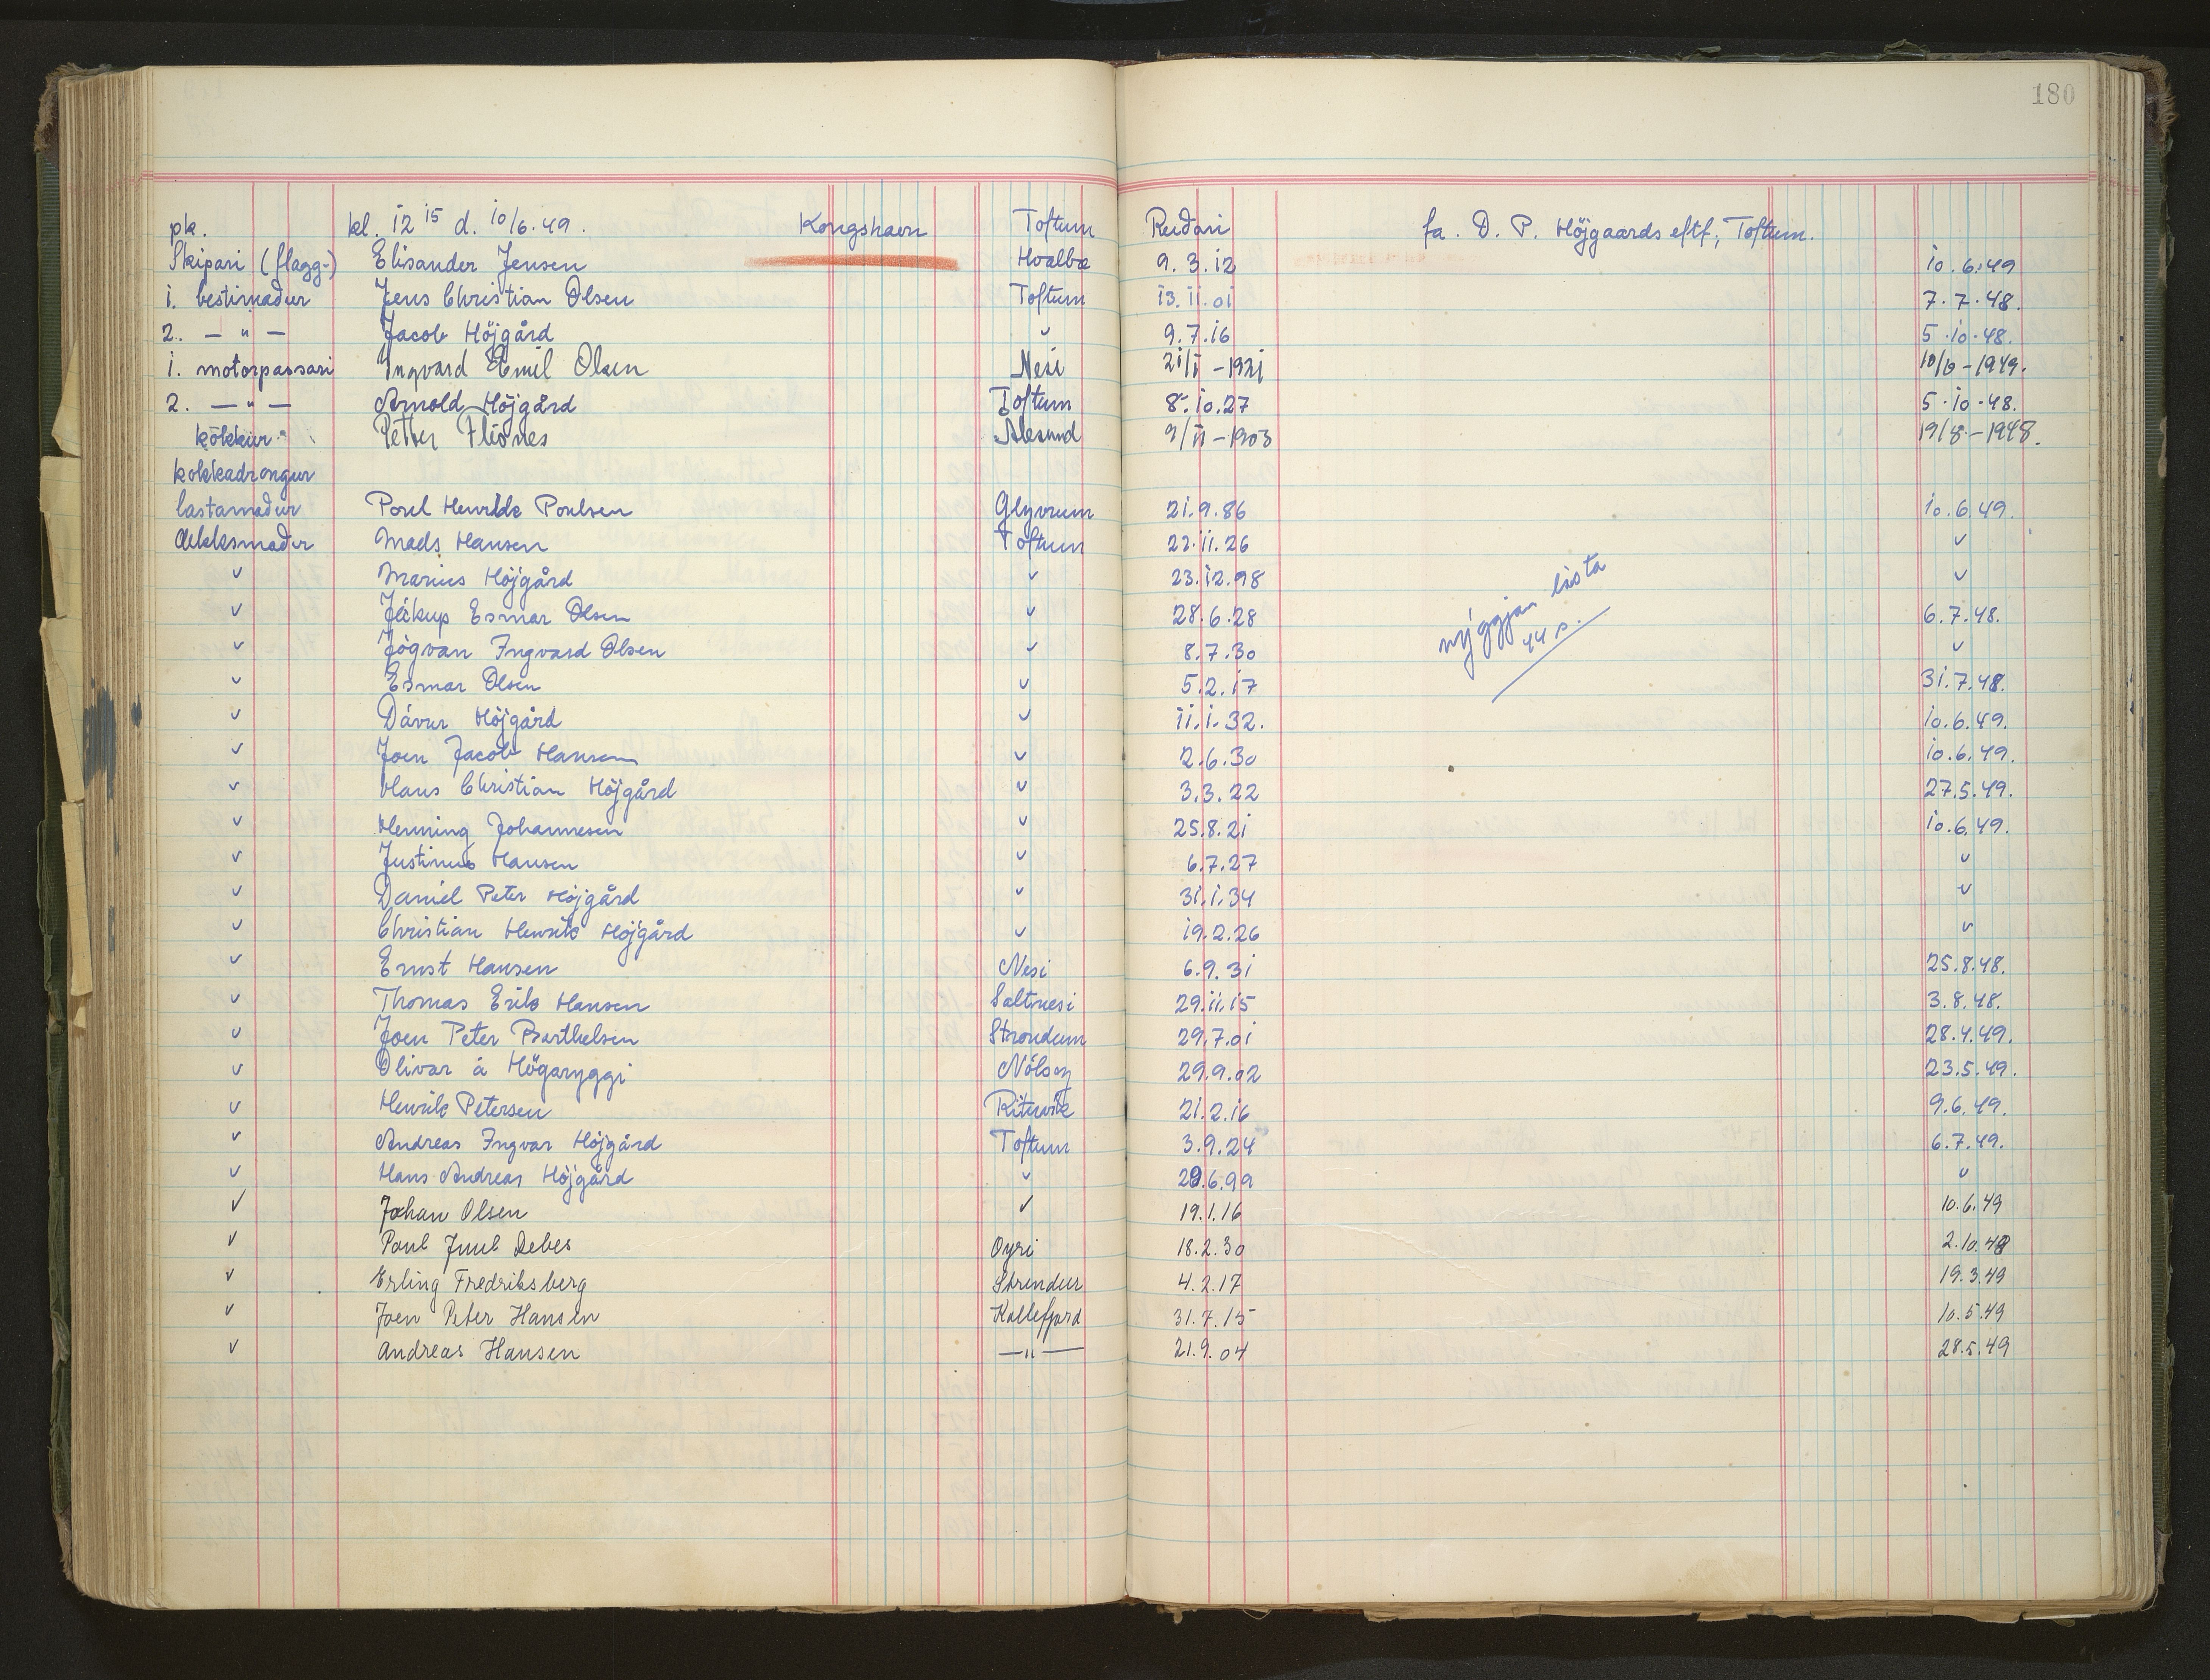 180
pk. kl. 12 15 d. 10/6.49. Kongshavn Toftum Reiðari fa. D. P. Höjgaards eftf; Toftum.
Skipari (flagg-) Elisander Jensen Hvalba 9.3.12 10.6.49
1. bestimaður Jens Christian Olsen Toftum 13.11.01 7.7.48.
2. — " — Jacob Höjgård ✓ 9.7.16 5.10.48.
1. motorpassari Ingvard Emil Olsen Nesi 21/1-1921 10/6-1949.
2. — " — Arnold Höjgård Toftum 8.10.27 5.10.48.
kokkur Petter Alesund 9/11-1903 19/8-1948.
kokkadrongur
lastamaður Poul Henrik Poulsen Glyvrum 21.9.86 10.6.49.
dekksmaður Mads Hansen Toftum 22.11.26 ✓
✓ Marius Höjgård ✓ 23.12.98 ✓
✓ Jákup Esmar Olsen ✓ 28.6.28 6.7.48.
✓ Jógvan Ingvard Olsen ✓ 8.7.30 ✓
nýggjan lista
44 s.
✓ Esmar Olsen ✓ 5.2.17 31.7.48.
✓ Dávur Höjgård ✓ 11.1.32. 10.6.49.
✓ Joen Jacob Hansen ✓ 2.6.30 10.6.49.
✓ Hans Christian Höjgård ✓ 3.3.22 27.5.49.
✓ Henning Johannesen ✓ 25.8.21 10.6.49.
✓ Justinus Hansen ✓ 6.7.27 ✓
✓ Daniel Peter Höjgård ✓ 31.1.34 ✓
✓ Christian Henrik Höjgård ✓ 19.2.26 ✓
✓ Ernst Hansen Nesi 6.9.31 25.8.48.
✓ Thomas Erik Hansen Saltnesi 29.11.15 3.8.48.
✓ Joen Peter Barthelsen Strondum 29.7.01 28.4.49.
✓ Olivar á Högaryggi Nólsoy 29.9.02 23.5.49.
✓ Henrik Petersen Rituvík 21.2.16 9.6.49.
✓ Andreas Ingvar Höjgård Toftum 3.9.24 6.7.49.
✓ Hans Andreas Höjgård ✓ 29.6.99 ✓
✓ Johan Olsen ✓ 19.1.16 10.6.49
✓ Poul Juul Debes Oyri 18.2.30 2.10.48
✓ Erling Fredriksberg Strendur 4.2.17 19.3.49
✓ Joen Peter Hansen Kollefjord 31.7.15 10.5.49
✓ Andreas Hansen —"— 21.9.04 28.5.49